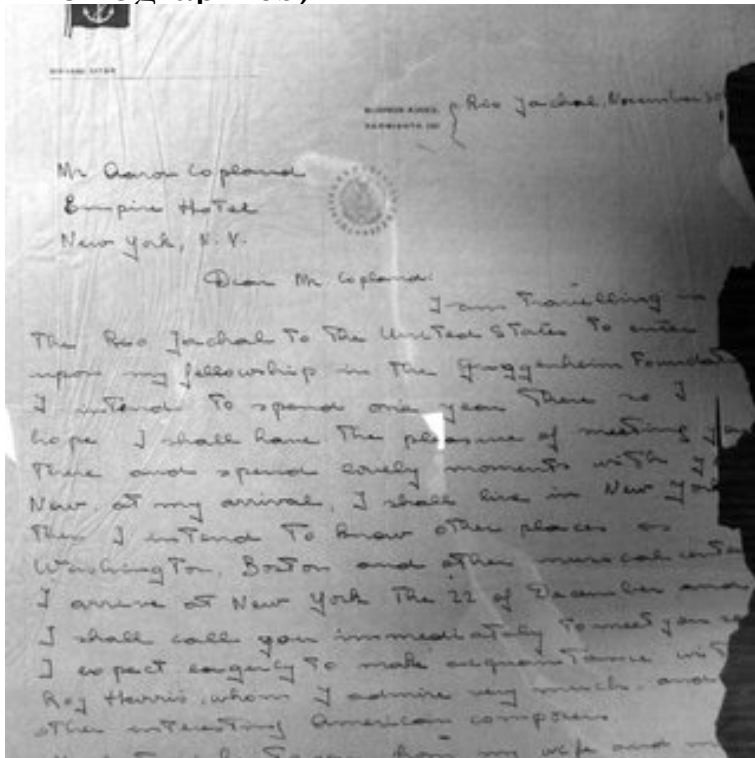 BUENOS AIRES
SARMIENTO
Rio Jachal, November 30
Mr Aaron Copland
Empire Hotel
New York, N.Y.
Dear Mr Copland:
I am travelling in
The Rio Jachal to the United States to enter
upon my fellowship in the Guggenheim Foundat
I intend to spend one year there so I
hope I shall have the pleasure of meeting you
there and spend lovely moments with y
New. at my arrival, I shall live in New York
then I intend to know other places as
Washington, Boston and other musical center
I arrive at New York the 22 of December and
I shall call you immediately to meet you
I expect eagerly to make acquaintance wit
Roy Harris, whom I admire very much. and
other interesting American composers.
from my wife and